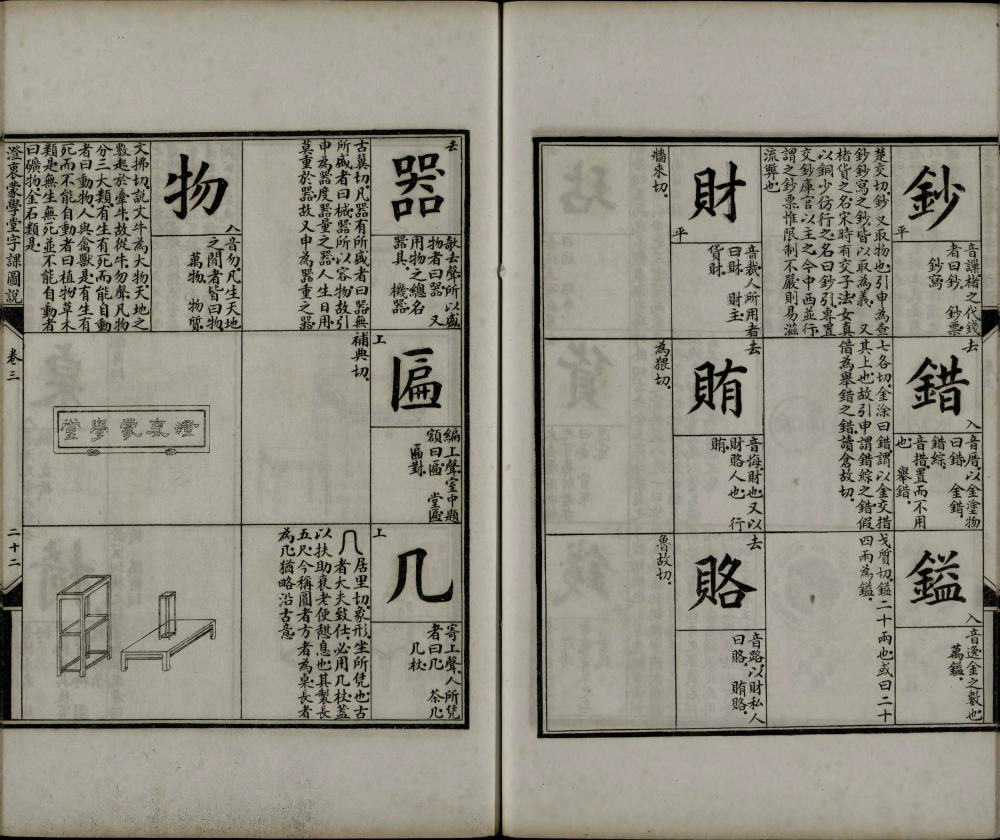 鈔
平
音謀楮之代錢
者曰鈔 鈔票
鈔寫
楚交切鈔又取物也引申為查
鈔鈔寫之鈔皆以取為義 又
楮貨之名宋時有交子法女真
以銅少仿行之名曰鈔引車置
交鈔庫官以主之今中西並行
謂之鈔票惟限制不嚴則易滋
流弊也
錯
去
入
音厝以金塗物
曰錯 金錯
錯綜
音措置而不用
也 舉錯
七各切金涂曰錯謂以金交措
其上也故引申謂錯綜之錯假
借為舉錯之錯讀倉故切
鎰
入
音逸金之數也
萬鎰
戈質切鎰二十兩也或曰二十
四兩為鎰
財
平
音裁人所用者
曰財 財主
貨財
牆來切
賄
去
音悔財也又以
財賂人也 行
賄
為猥切
賂
去
音路以財私人
曰賂 賄賂
魯故切
器
去
欷去聲所以盛
物者曰器 又
用物之總名
器具 機器
古冀切凡器有所盛者曰器無
所盛者曰械器所以容物故引
申為器度器量之器人生日用
莫重於器故又申為器重之器
匾
上
編上聲室中題
額曰匾 堂匾
匾對
補典切
几
上
寄上聲人所凭
者曰几 茶几
几杖
居里切象形坐所凭也古
者大夫致仕必用几杖蓋
以扶助衰老便憩息也其製長
五尺今稱圓者方者為桌長者
為几猶略沿古意
物
入
音勿凡生天地
之間者皆曰物
萬物 物質
文拂切說文牛為大物天地之
數起於牽牛故從牛勿聲凡物
分三大類有生有死而能自動
者曰動物人與禽獸是有生有
死而不能自動者曰植物草木
類是無生無死並不能自動者
曰礦物金石類是
澄衷蒙學堂
澄衷蒙學堂字課圖說
卷三
二十二